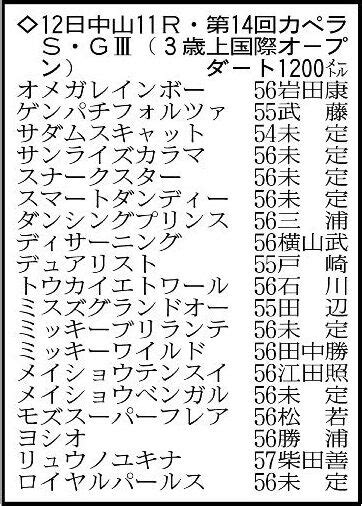 ◇12日中山11R・第14回カペラ
S・GⅢ(3歳上国際オープ
ン) ダート1200メートル
オメガレインボー 56岩田康
ゲンパチフォルツァ 55武藤
サダムスキャット 54未定
サンライズカラマ 56未定
スナークスター 56未定
スマートダンディー 56未定
ダンシングプリンス 56三浦
ディサーニング 56横山武
デュアリスト 55戸崎
トウカイエトワール 56石川
ミスズグランドオー 55田辺
ミッキーブリランテ 56未定
ミッキーワイルド 56田中勝
メイショウテンスイ 56江田照
メイショウベンガル 56未定
モズスーパーフレア 56松若
ヨシオ 56勝浦
リュウノユキナ 57柴田善
ロイヤルパールス 56未定